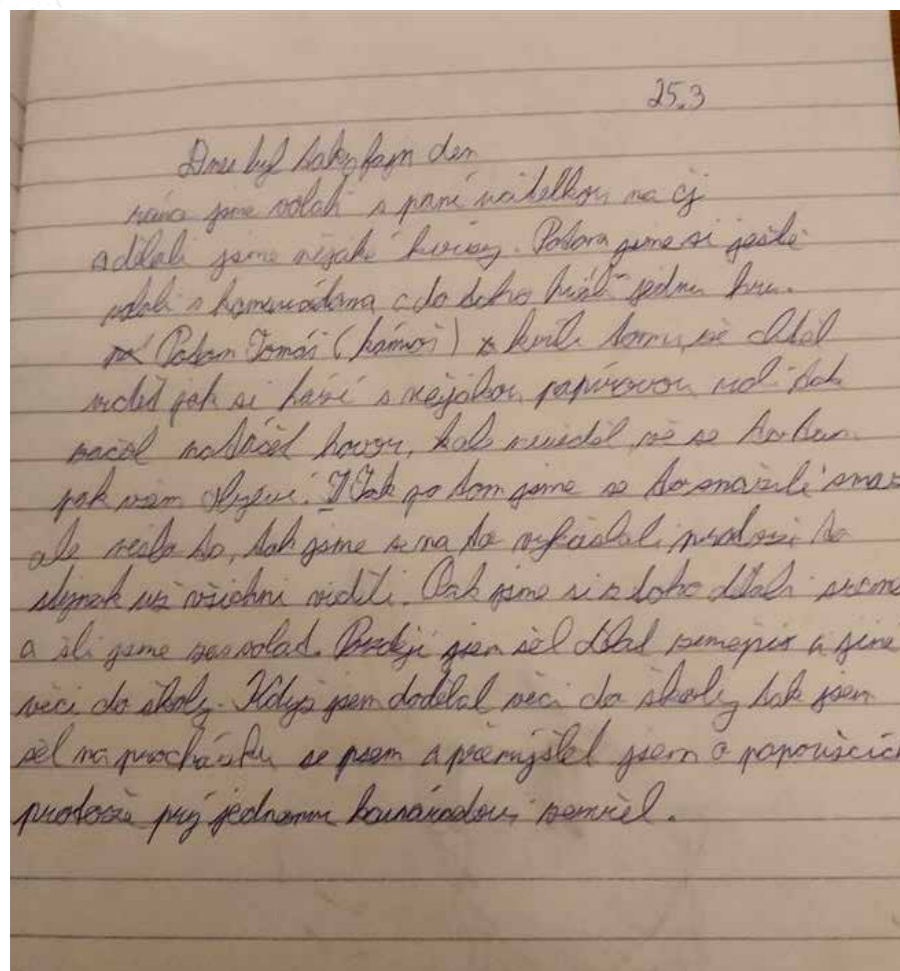 25.3
Dnes byl taky fajn den
ráno jsme volali s paní učitelkou na čj
a dělali jsme nějaké kvízy. Potom jsme si ještě
volali s kamarádama a do toho hráli jednu hru.
Potom Tomáš (kámoš) kvůli tomu, že chtěl
vidět jak si hází s nějakou papírovou tak
začal natáčet hovor, nevěděl že se to tam
pak všem objeví. Tak po tom jsme se to snažili smaz
ale nešlo to, tak jsme se na to vykašlali protože to
stejnak už všichni viděli. Pak jsme si z toho dělali srand
a šli jsme zas volat. Později jsem šel dělat zeměpis a jiné
věci do školy. Když jsem dodělal věci do školy tak jsem
šel na procházku se psem a přemýšlel jsem o papoušcích
protože prý jednomu kamarádovi zemřel.